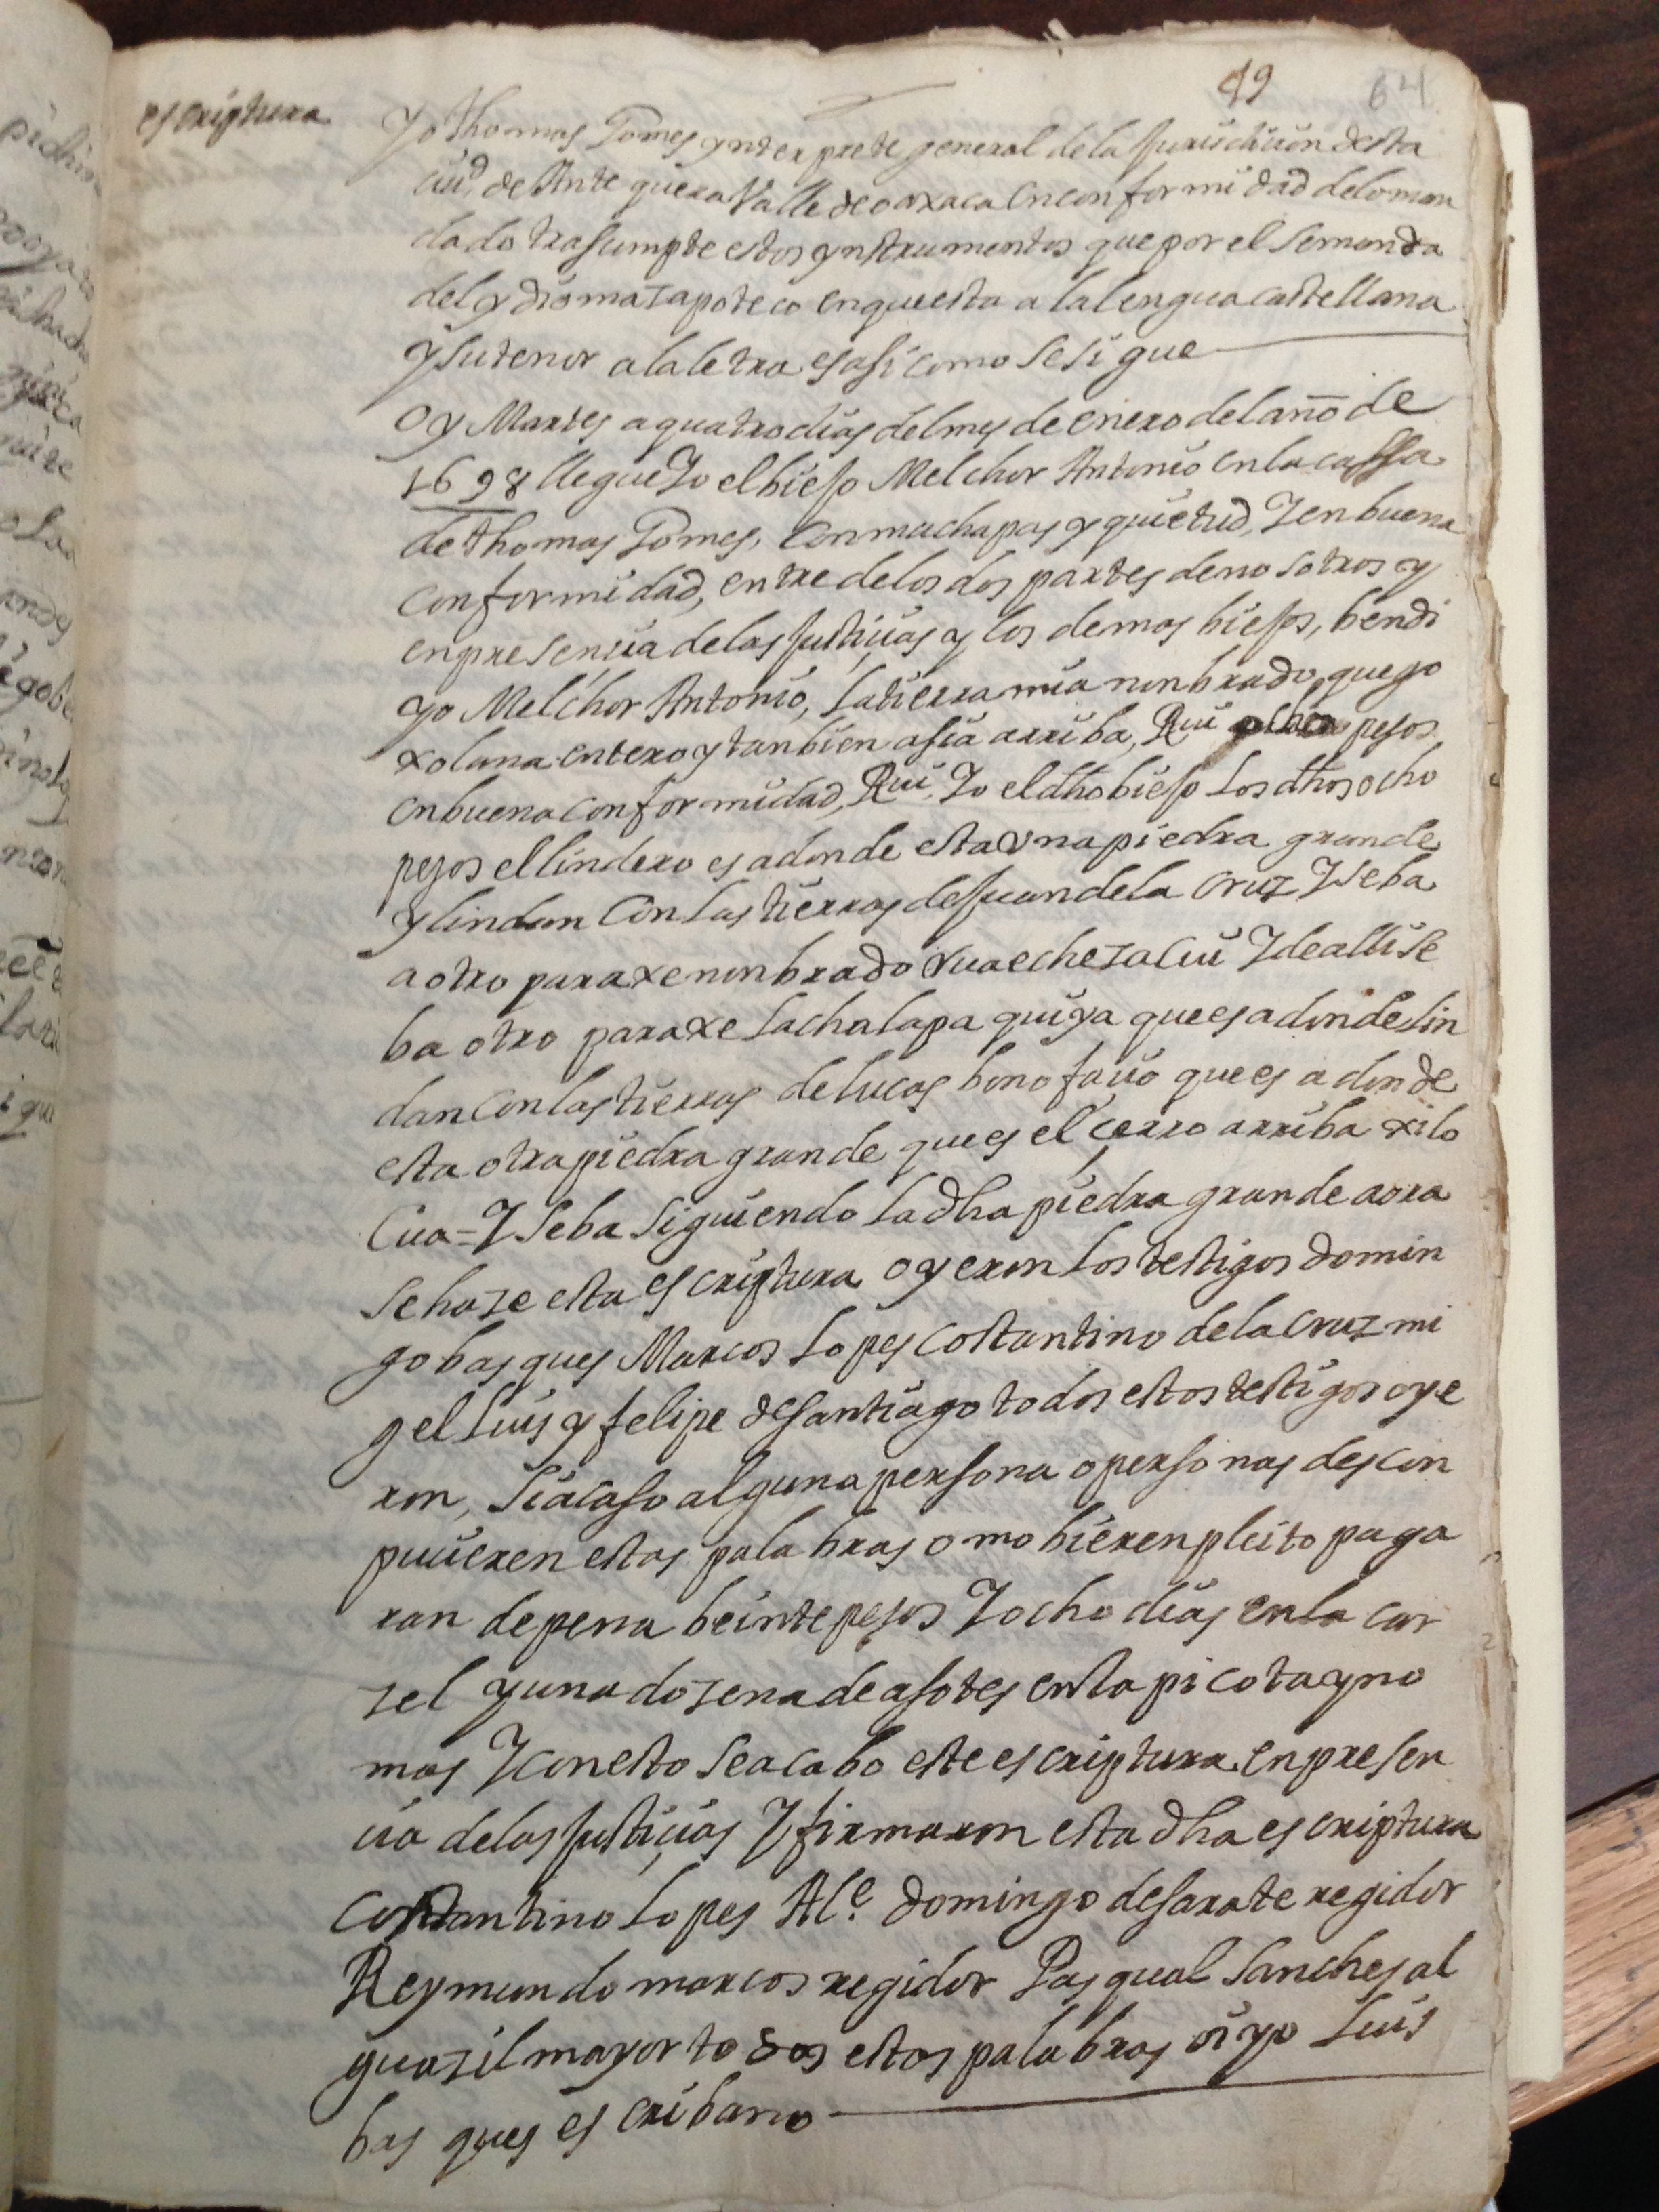 49 64
escriptura
Yo thomas Gomes ynterprete general de la jurisdicion desta
ciud. de Antequera Valle de oaxaca en conformidad de lo man
dado trasumpte estos ynstrumentos que por el se manda
del ydioma zapoteco en que esta a la lengua castellana
y su tenor a la letra es asi como se sigue
Oy Martes a quatro dias del mes de enero del año de
1698 llegue Yo el biejo Melchor Antonio en la cassa
de thomas Gomes, con mucha pas y quietud, Y en buena
conformidad, entre de los dos partes de nosotros y
en presencia de las justicias y los demas biejos, bendi
yo Melchor Antonio, la tierra mia nonbrado, quego
xolana entero y tanbien asia arriba, Rui ocho pesos
en buena conformidad, Rui, Yo el dho biejo los dhos ocho
pesos el lindero es a donde esta una piedra grande
y lindan con las tierras de juan de la cruz Y se ba
a otro paraxe nonbrado ruaeche zacui Y de alli se
ba otro paraxe lachalapa quiya que es a donde lin
dan con las tierras de lucas bonofacio que es a donde
esta otra piedra grande que es el çerro arriba xilo
Cua = Y se ba siguiendo la dha piedra grande aora
se haze esta escriptura oyeron los testigos domin
go basques Marcos Lopes costantino de la cruz mi
gel luis y felipe de santiago todos estos testigos oye
ron, si acaso alguna persona o personas descon
puuieren estas palabras o mobieren pleito paga
ran de pena beinte pesos Y ocho dias en la car
zel y una dozena de asotes en la picota y no
mas Y con esto se acabo este escriptura en presen
cia de las justicias Y firmaron esta dha escriptura
Costantino Lopes Alc.e domingo de sarate regidor
Reymundo marcos regidor Pasqual Sanches al
guazil mayor todos estos palabras oi yo Luis
basques escribano